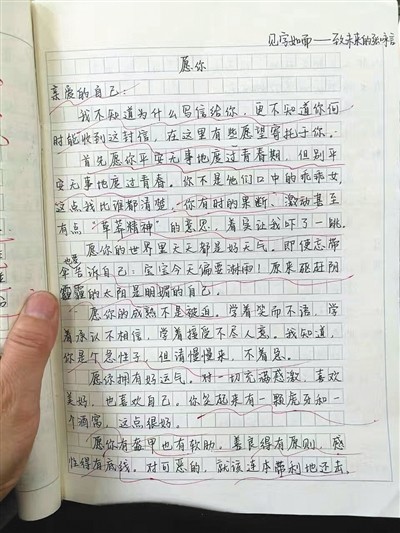 见字如面——致未来的张
愿你
亲爱的自己:
我不知道为什么写信给你,更不知道你何
时能收到这封信,在这里有些愿望寄托于你。
首先愿你平安无事地度过青春期,但别平
安无事地度过青春。你不是他们口中的乖乖女,
这点我比谁都清楚。你有时的果断、激动甚至
有点“草莽精神”的意思,着实让我吓了一跳。
愿你的世界里天天都是好天气。即便忘带
伞也要告诉自己:宝宝今天偏要淋雨!原来驱赶阴
霾的太阳是明媚的自己。
愿你的成熟不是被迫。学着笑而不语,学
着承认不相信,学着接受不尽人意。我知道,
你是个急性子,但请慢慢来,不着急。
愿你拥有好运气。对一切充满感激,喜欢
美好,也喜欢自己。你笑起来有一颗虎牙和一
个酒窝,这点很好。
愿你有盔甲也有软肋,善良得有原则,感
性得有底线。对可恶的,就该连本带利地还去。